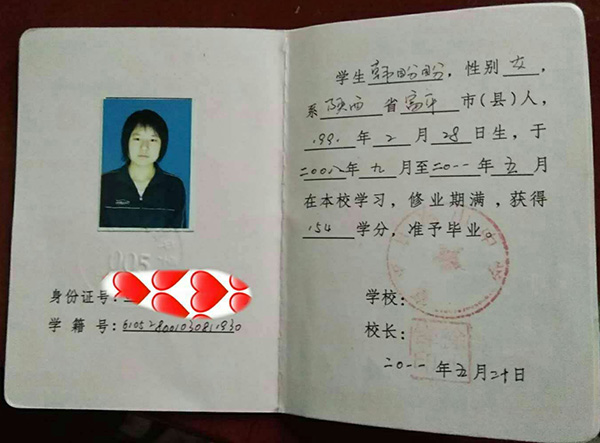 身份证号:
学 籍 号:610528001030811930
学生韩盼盼,性别 女,
系 陕西 省 富平 市(县)人,
1991 年 2 月 28 日生,于
二00八年 九 月至二0一一 年 五 月
在本校学习,修业期满,获得
154 学分,准予毕业。
学校:
校长:
二0一一 年五月二十日